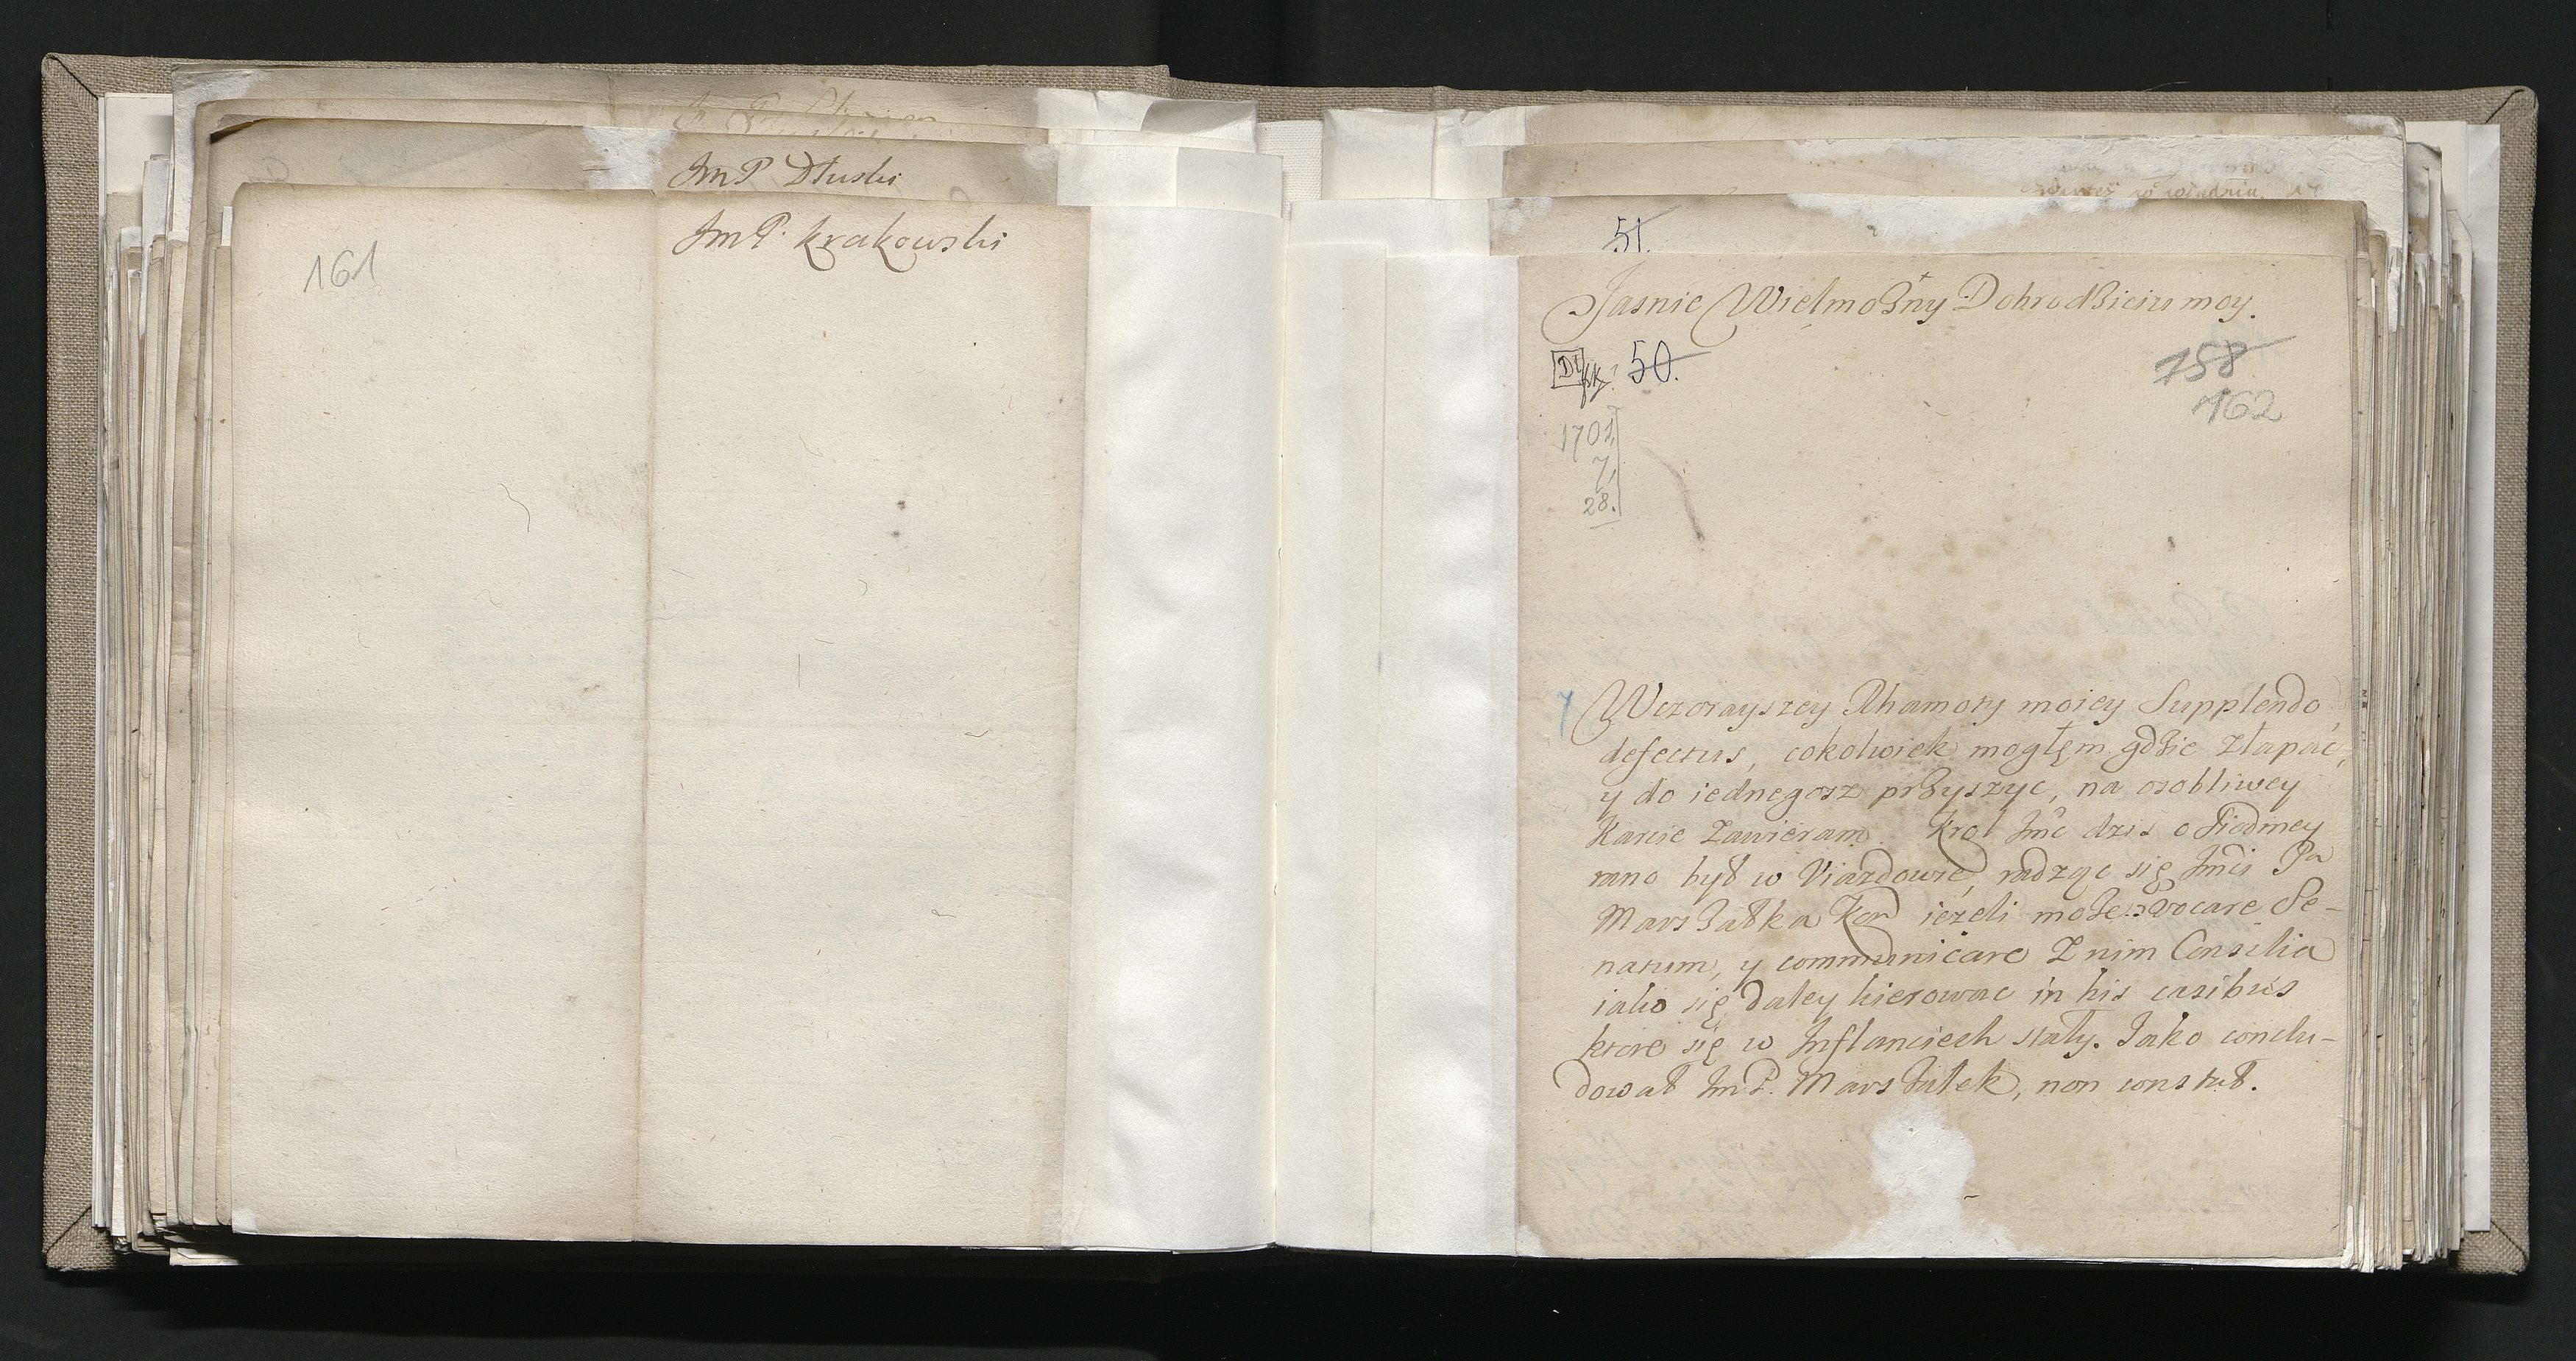 ImP Dłuski
ImP. Krakowski
161
51.
Jasnie Wielmożny Dobrodzieiu moy.
50.
158
162
1701,
7,
28.
Wczorayszey Rhamoty moiey Supplendo
defectus, cokolwiek mogłęm gdzie złapać,
y do iednegosz przyszyc, na osobliwey
Karcie zawieram. Krol Jmc dzis o Siodmey
rano był w Viazdowie, radząc się Jmci Pa
Marszałka Kor ieżeli może vocare Se-
natum, y communicare z nim Consilia
iako się daley kierowac in his casibus
ktore się w Inflanciech stały. Jako conclu-
dował ImP. Marszałek, non constat.